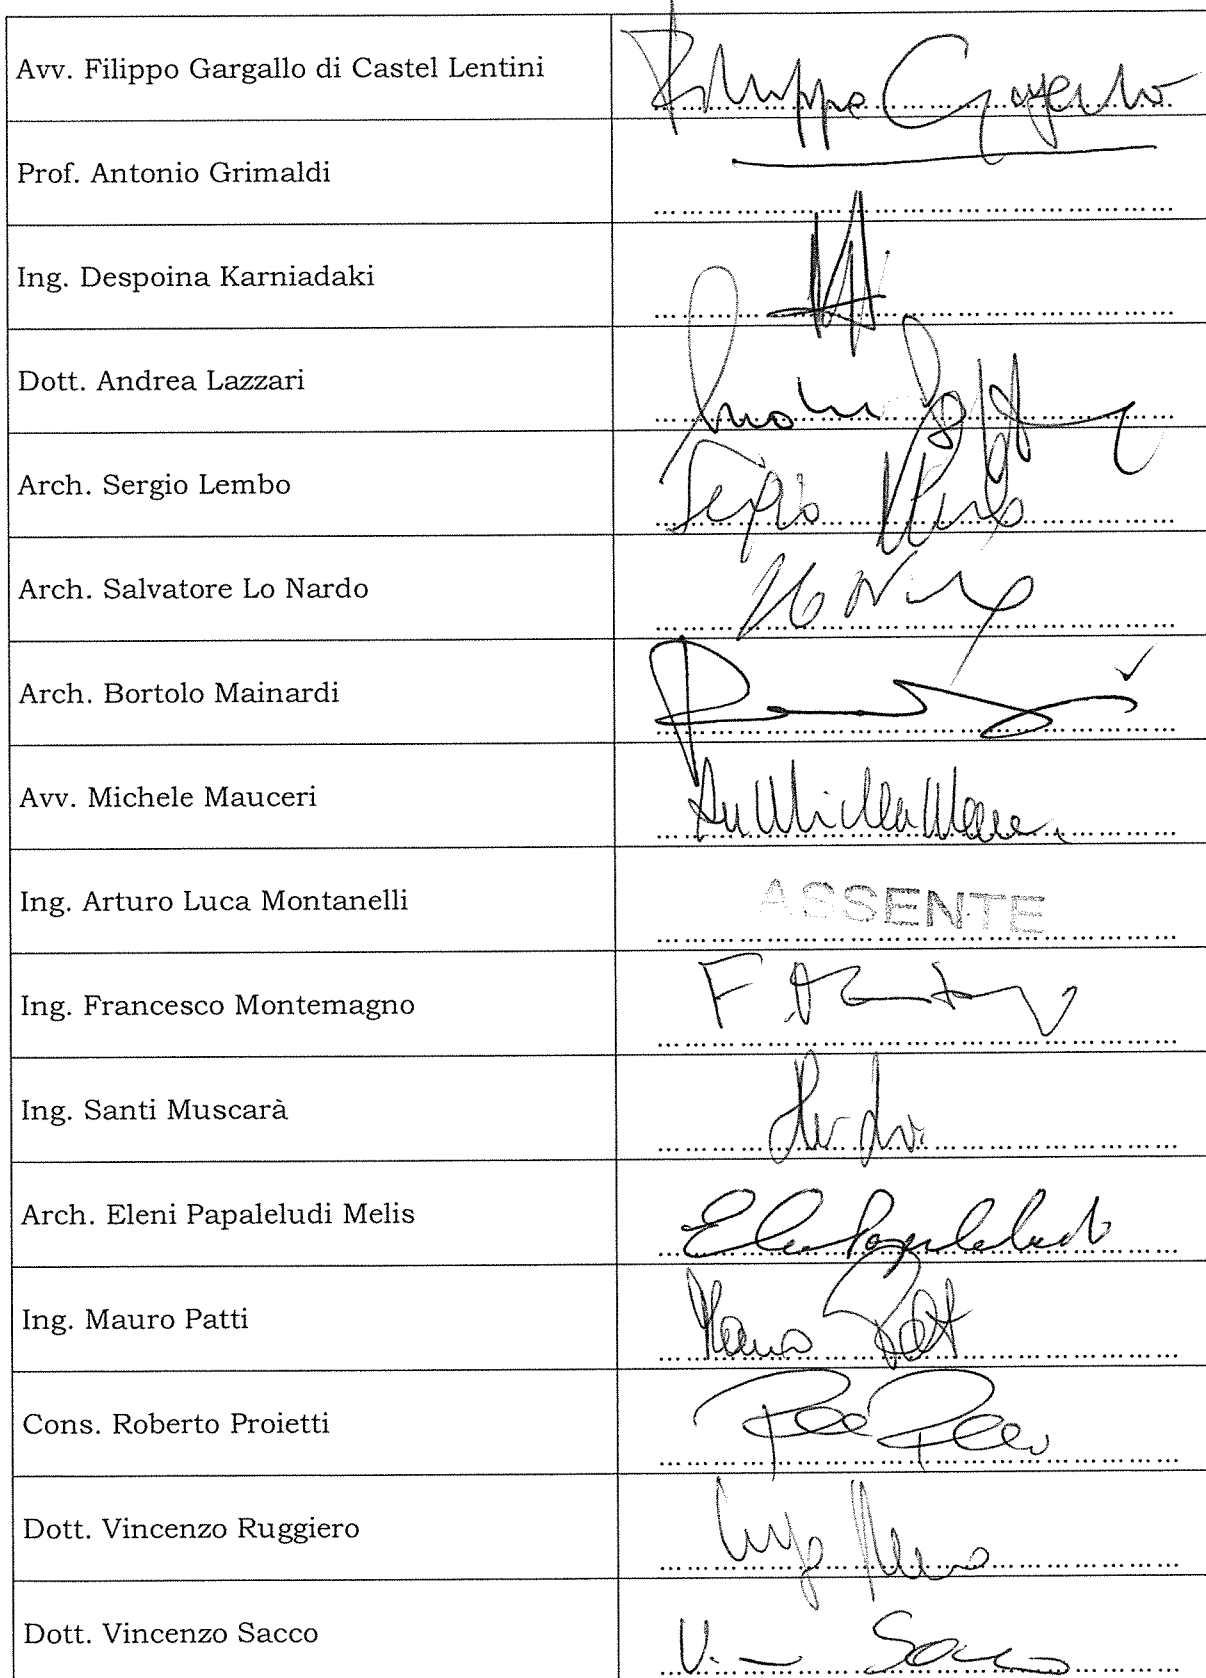 Avv. Filippo Gargallo di Castel Lentini
Filippo Gargallo
Prof. Antonio Grimaldi
Ing. Despoina Karniadaki
Dott. Andrea Lazzari
Arch. Sergio Lembo
Sergio
Arch. Salvatore Lo Nardo
Arch. Bortolo Mainardi
Avv. Michele Mauceri
Ing. Arturo Luca Montanelli
ASSENTE
Ing. Francesco Montemagno
Ing. Santi Muscarà
Arch. Eleni Papaleludi Melis
Ing. Mauro Patti
Mauro Patti
Cons. Roberto Proietti
Dott. Vincenzo Ruggiero
Dott. Vincenzo Sacco
V. Sacco